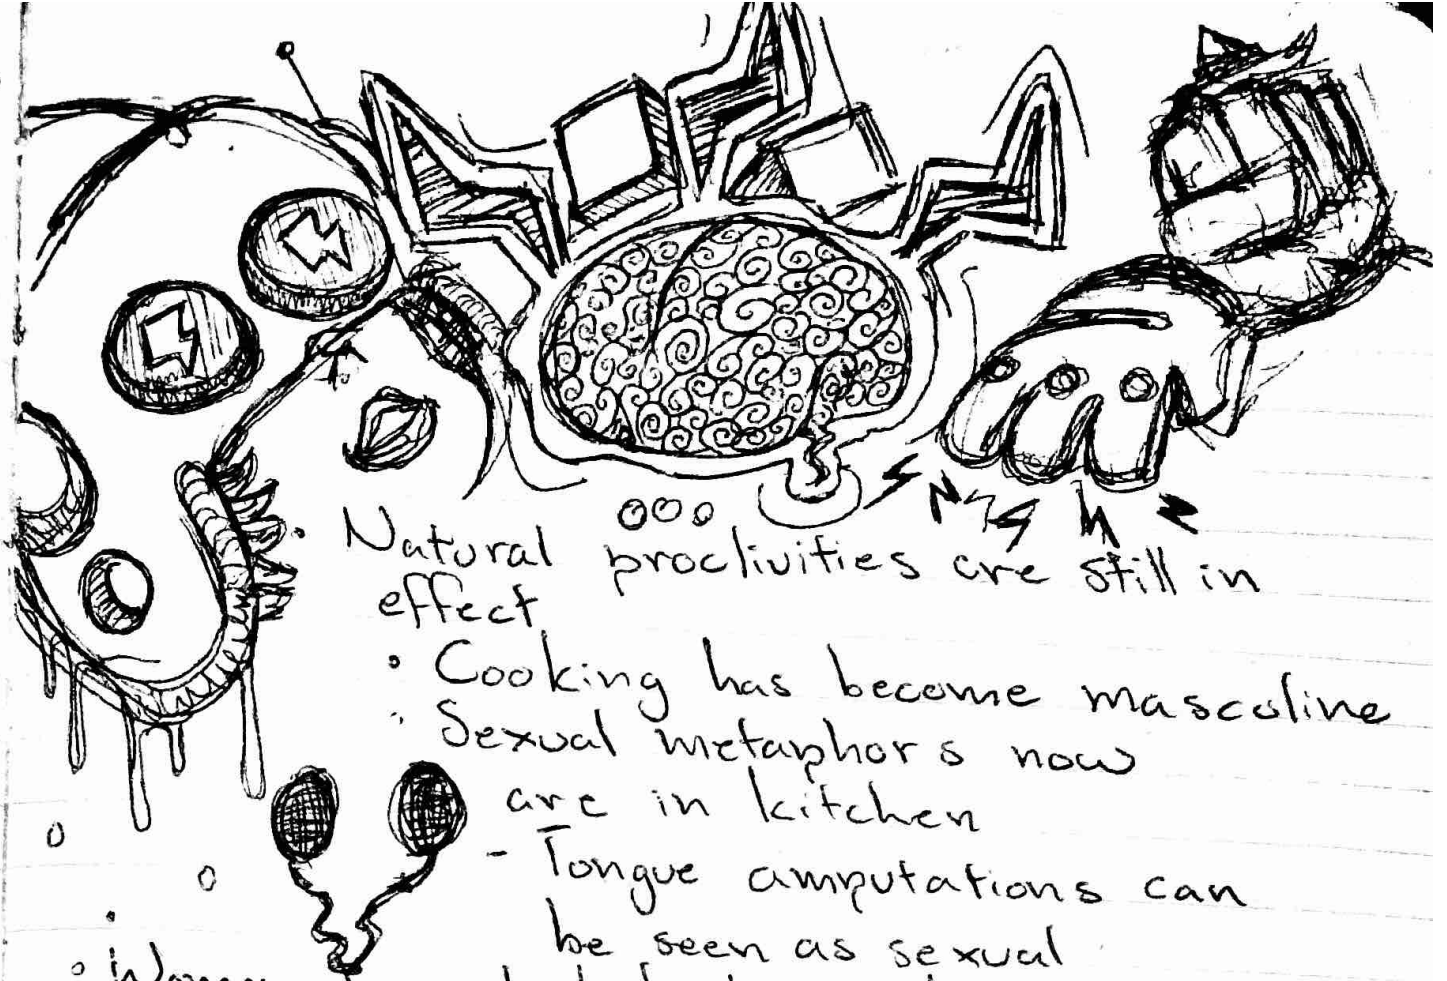 Natural proclivities are still in
effect
• Cooking has become mascoline
• Sexual metaphors now
are in kitchen
- Tongue amputations can
be seen as sexual